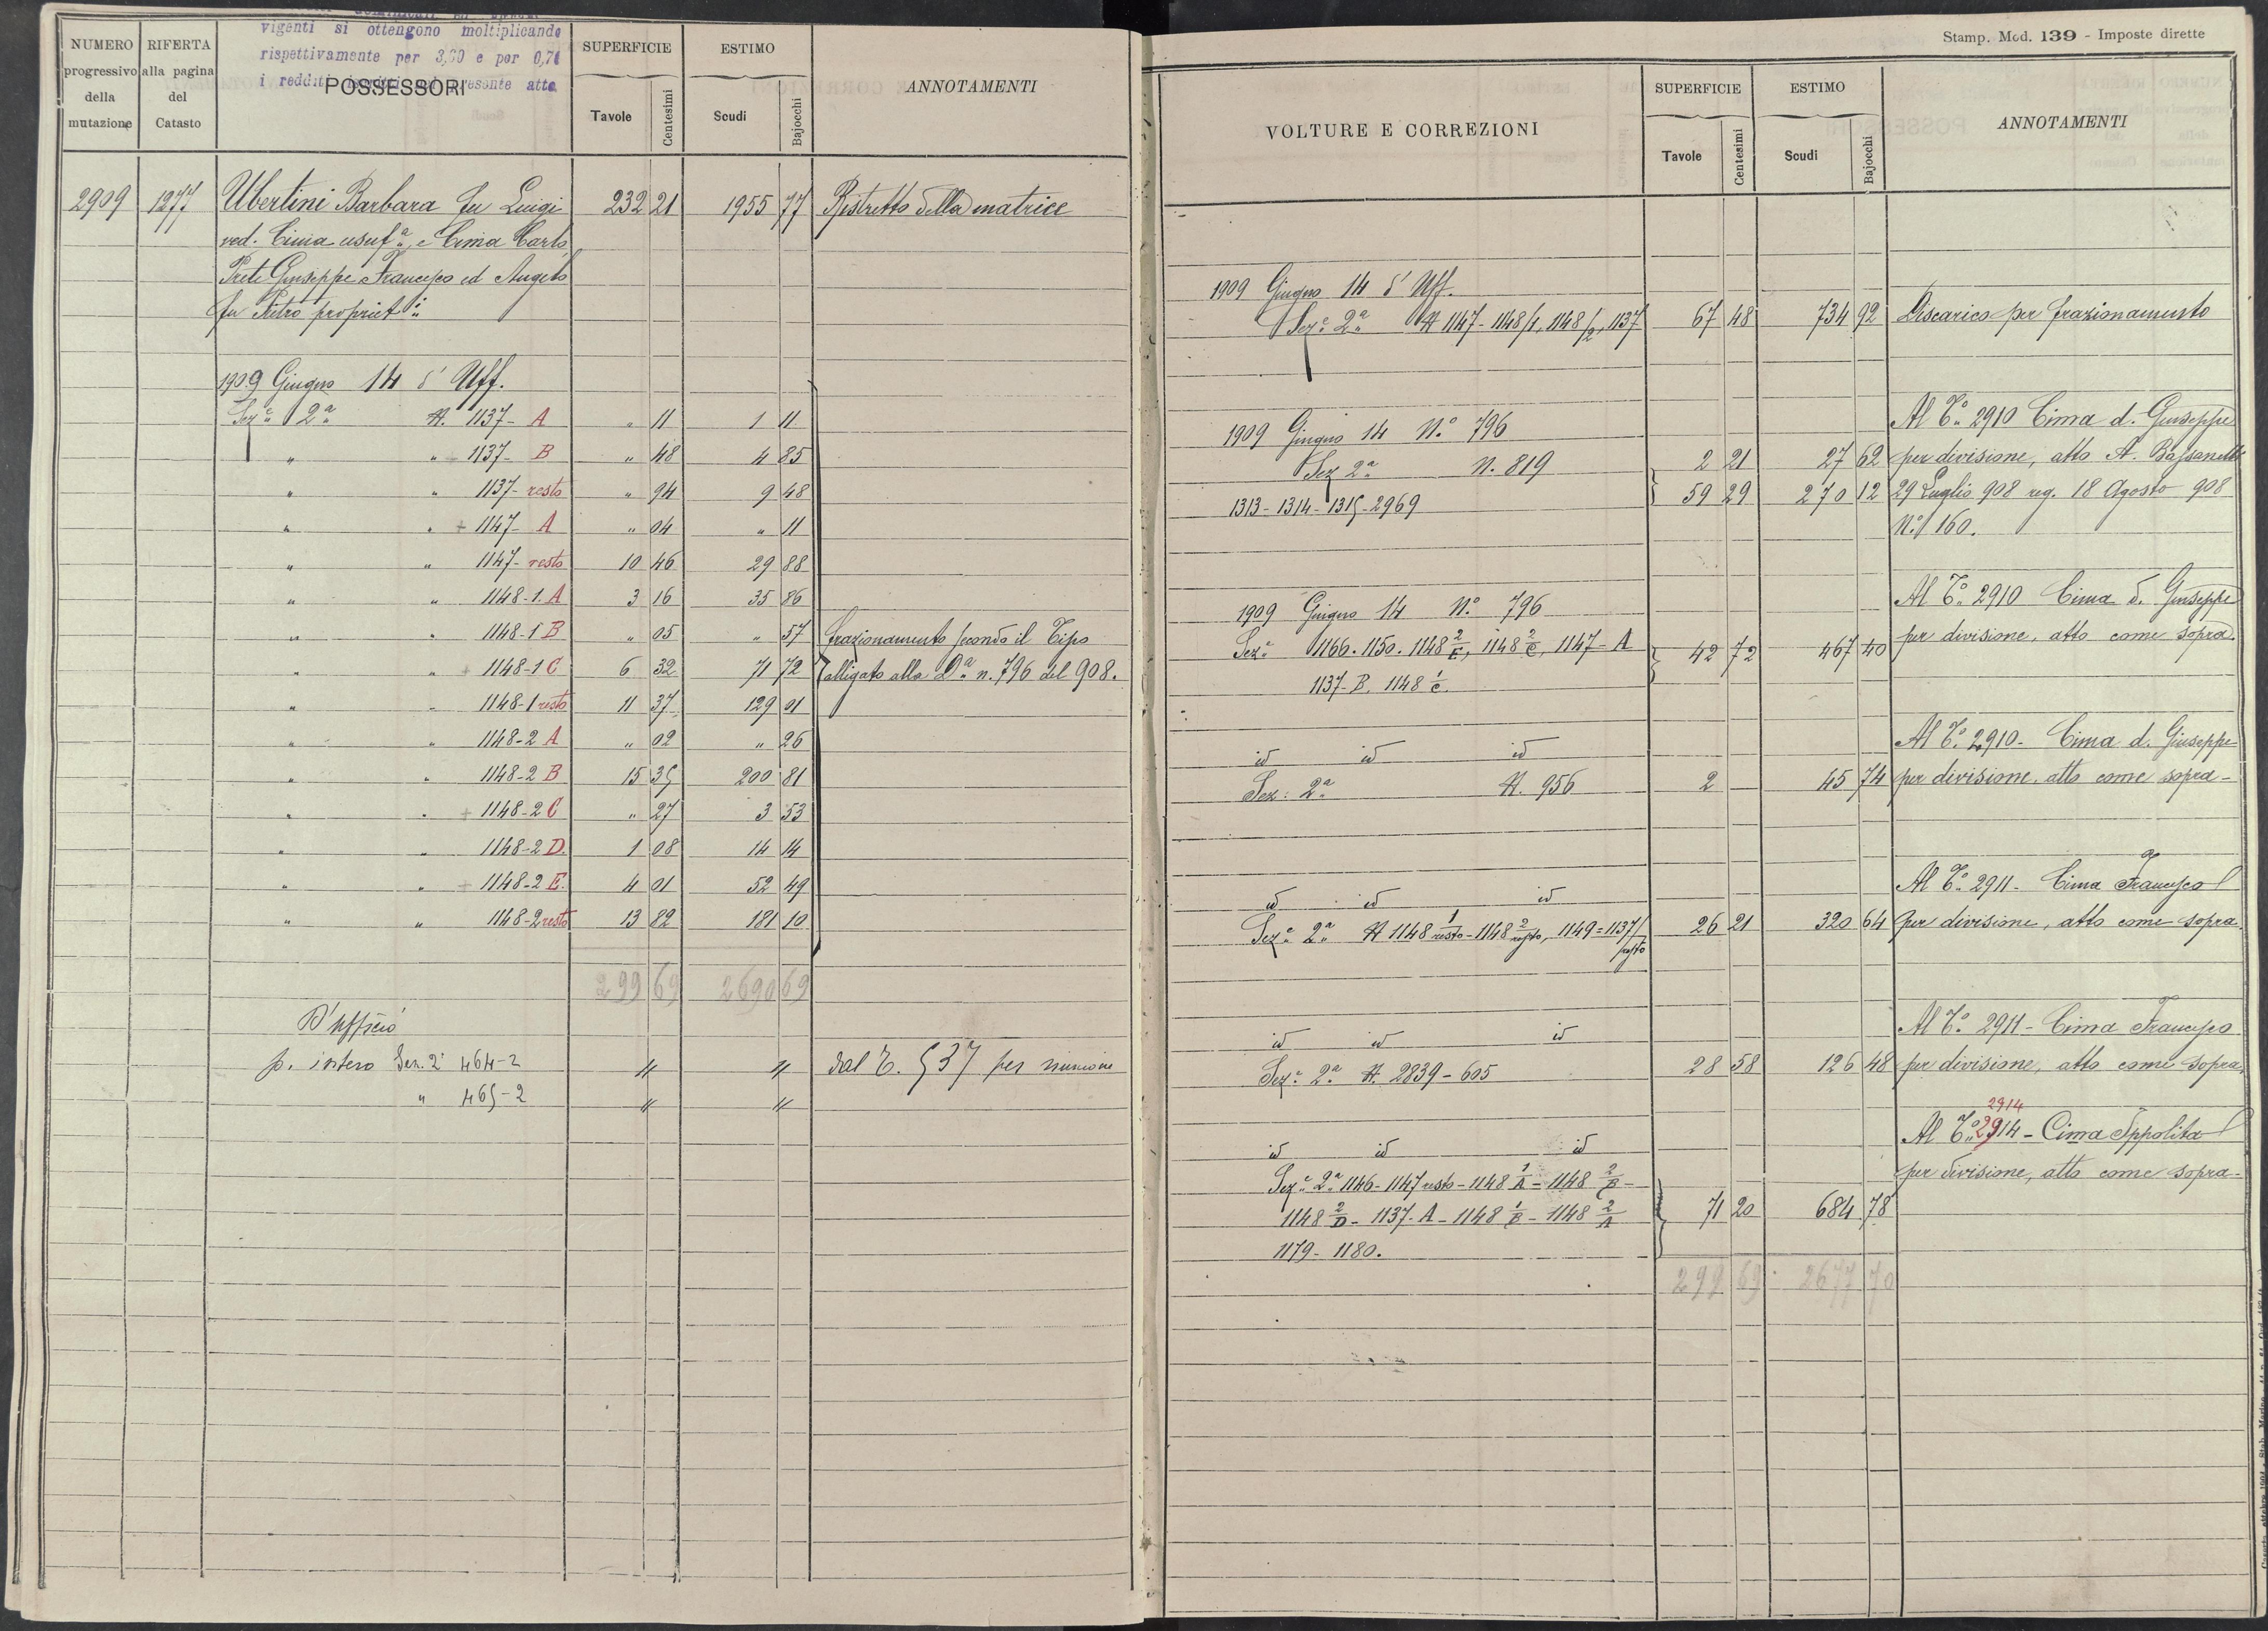 vigenti si ottengono moltiplicando
rispettivamente per 3,60 e per 0,70
i redditi presente atto
NUMERO progressivo della mutazione
RIFERTA alla pagina del Catasto
POSSESSORI
SUPERFICIE Tavole Centesimi
ESTIMO Scudi Bajocchi
ANNOTAMENTI
2909 1277 Ubertini Barbara fu Luigi 232 21 1955 77 Ristretto della matrice
ved. Cima usufª e Cima Carlo
Prete Giuseppe Francesco ed Angelo
fu Pietro propriet i
1909 Giugno 14 d' Uff.
Sez.e 2ª N. 1137 - A " 11 1 11
" " 1137 - B " 48 4 85
" " 1137 - resto " 94 9 48
" " + 1147 - A " 04 " 11
" " 1147 - resto 10 46 29 88
" " 1148-1. A 3 16 35 86
" " 1148-1 B " 05 " 57 frazionamento secondo il Tipo
" " + 1148-1 C 6 32 71 72 alligato alla Dª n. 796 del 908.
" " 1148-1 resto 11 37 129 01
" " 1148-2 A " 02 " 26
" " 1148-2 B 15 35 200 81
" " + 1148-2 C " 27 3 53
" " 1148-2 D. 1 08 14 14
" " + 1148-2 E. 4 01 52 49
" " 1148-2 resto 13 82 181 10
299 69 2690 69
D'ufficio
p. intero Sez. 2ª 464-2 " " dal T. 537 per riunione
" 465-2 " "
Stamp. Mod. 139 - Imposte dirette
VOLTURE E CORREZIONI
SUPERFICIE Tavole Centesimi
ESTIMO Scudi Bajocchi
ANNOTAMENTI
1909 Giugno 14 d' Uff.
Sez.e 2ª N 1147 - 1148/1, 1148/2, 1137 67 48 734 92 Discarico per frazionamento
Al T.o 2910 Cima d. Giuseppe
1909 Giugno 14 N.o 796
Sez 2ª N. 819 2 21 27 62 per divisione, atto A. Bassanelli
1313 - 1314 - 1315 - 2969 59 29 270 12 29 Luglio 908 reg. 18 Agosto 908
N.o 160.
Al T.o 2910 Cima d. Giuseppe
1909 Giugno 14 N.o 796
Sez.e 1166. 1150. 1148 2/E, 1148 2/C, 1147 - A 42 72 467 40 per divisione, atto come sopra.
1137 - B. 1148 1/C.
Al T.o 2910 - Cima d. Giuseppe
id id id
Sez: 2ª N. 956 2 45 74 per divisione, atto come sopra -
Al T.o 2911 - Cima Francesco
id id id
Sez.e 2ª N 1148 1/resto - 1148 2/resto, 1149 = 1137/resto 26 21 320 64 per divisione, atto come sopra.
Al T.o 2911 - Cima Francesco
id id id
Sez.e 2ª N. 2839 - 605 28 58 126 48 per divisione, atto come sopra.
2914
Al T.o 2914 - Cima Ippolita
id id id
per divisione, atto come sopra -
Sez.e 2ª 1146 - 1147 resto - 1148 1/A = 1148 2/B -
1148 2/D - 1137 - A - 1148 1/B - 1148 2/A 71 20 684 78
1179 - 1180.
299 69 2677 70